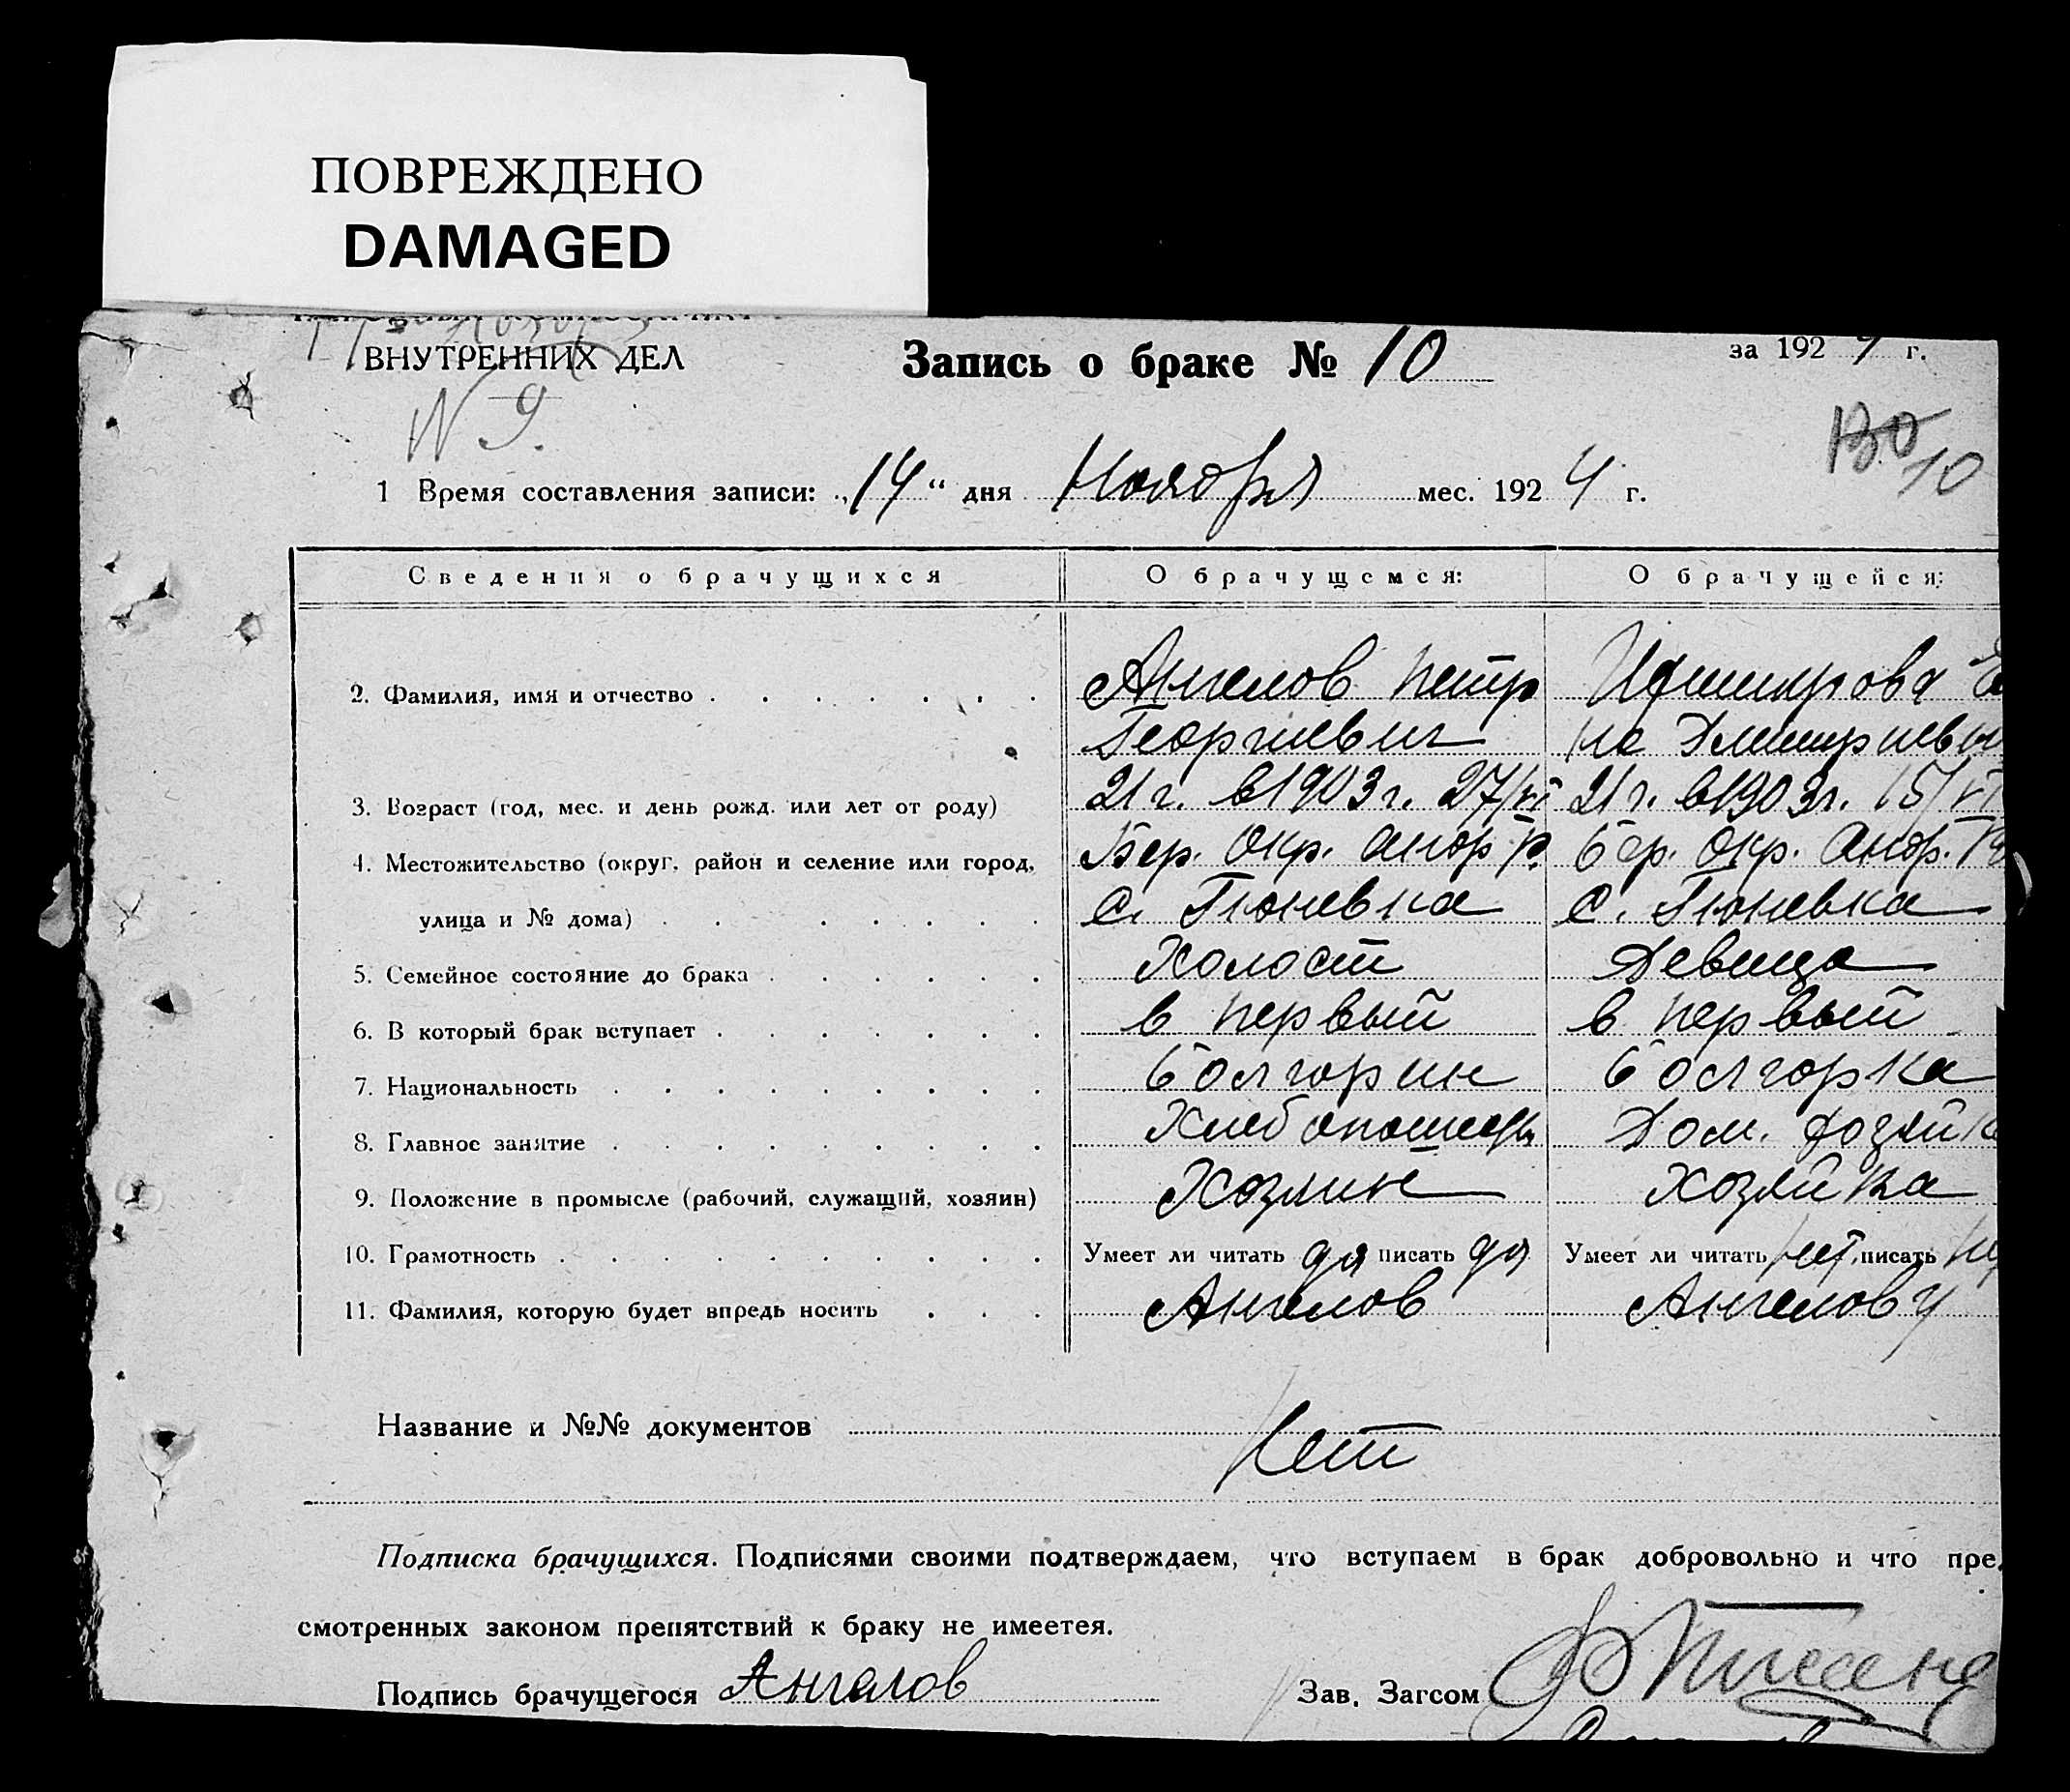 ПОВРЕЖДЕНО
DAMAGED
ВНУТРЕННИХ ДЕЛ
Запись о браке № 10
за 1924 г.
N 9.
130
10
1 Время составления записи: „14“ дня Ноября мес. 1924 г.
Сведения о брачущихся О брачущемся: О брачущейся:
2. Фамилия, имя и отчество Ангелов Петр
Георгиевич на Дмитриевн
3. Возраст (год, мес. и день рожд. или лет от роду) 21 г. в 1903 г. 27/VI 21 г. в 1903 г. 15/VI
4. Местожительство (округ, район и селение или город, Бер. Окр. Анор. Р. Бер. Окр. Анор. Р
улица и № дома) с. Гюневка с. Гюневка
5. Семейное состояние до брака Холост Девица
6. В который брак вступает в первый в первый
7. Национальность Болгорин Болгорка
8. Главное занятие Хлебопашець Дом. хозяйк
9. Положение в промысле (рабочий, служащий, хозяин) Хозяин Хозяйка
10. Грамотность Умеет ли читать да писать да Умеет ли читать нет писать не
11. Фамилия, которую будет впредь носить Ангелов Ангелову
Название и №№ документов Нет
Подписка брачущихся. Подписями своими подтверждаем, что вступаем в брак добровольно и что пре
смотренных законом препятствий к браку не имеетея.
Подпись брачущегося Ангелов Зав. Загсом